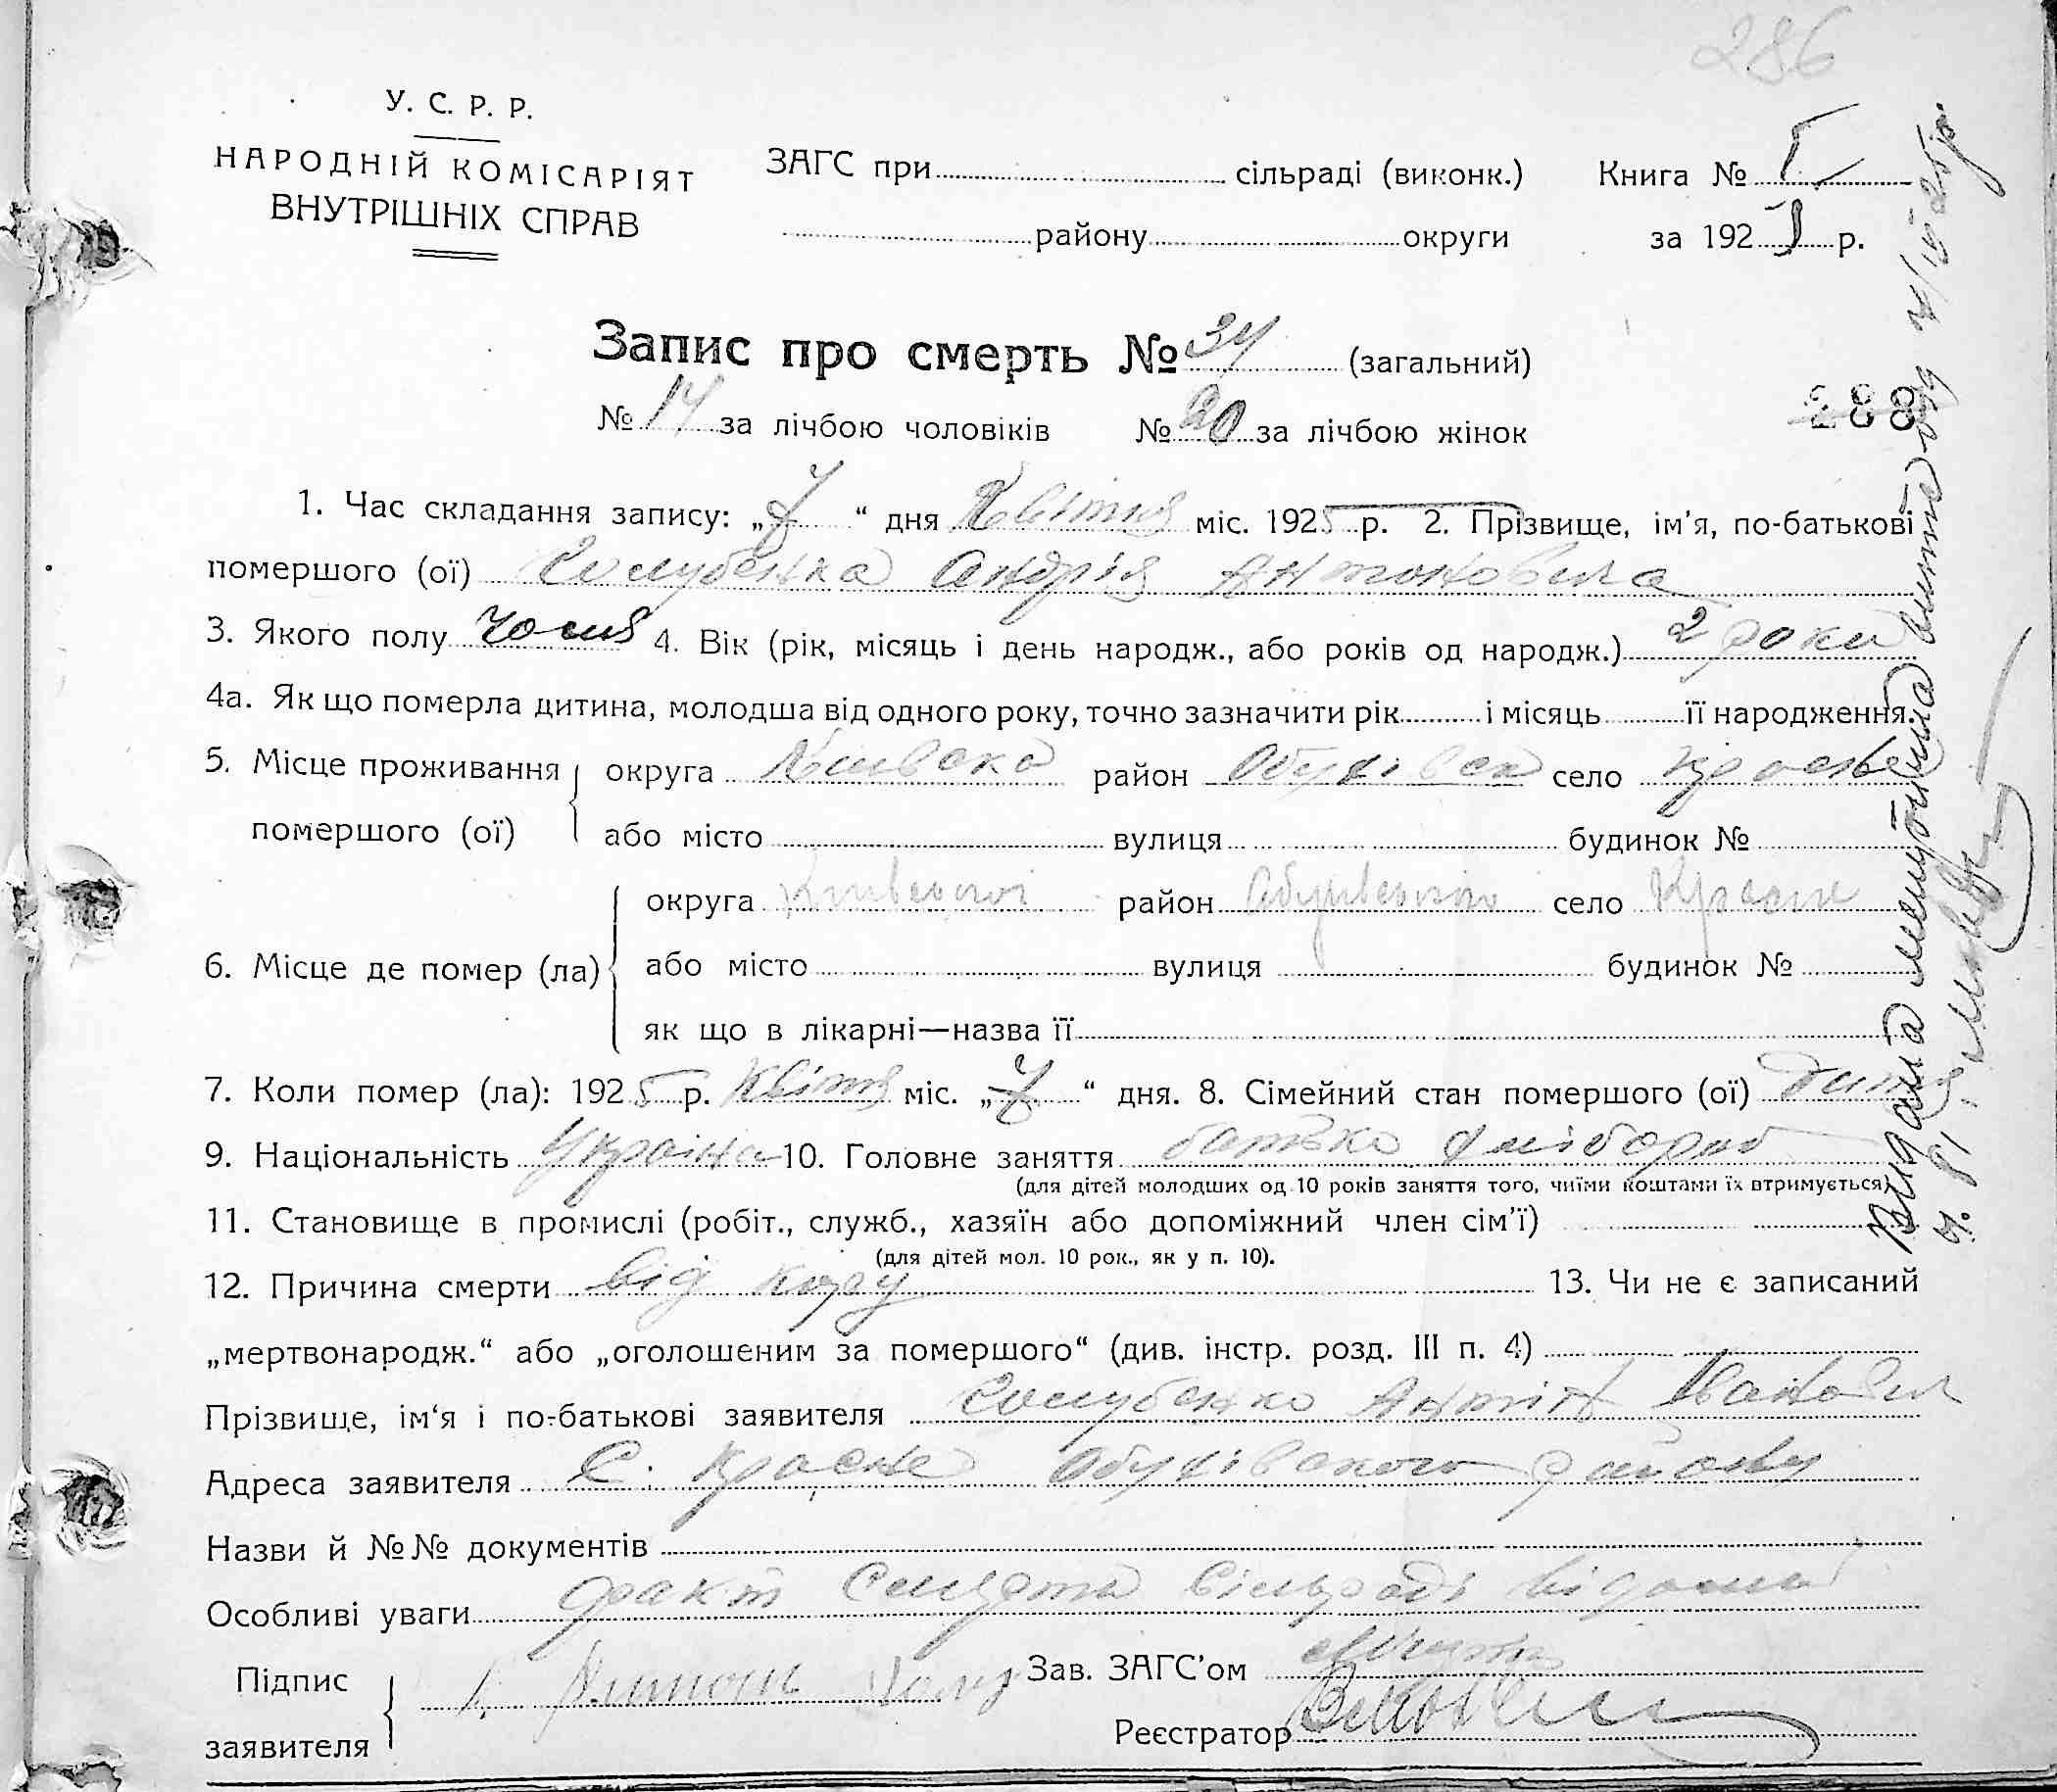 286
У. С. Р. Р.
НАРОДНІЙ КОМІСАРІЯТ
ВНУТРІШНІХ СПРАВ
ЗАГС при сільраді (виконк.) Книга № I
району округи за 1925 р.
Запис про смерть № 34 (загальний)
№ 14 за лічбою чоловіків № 20 за лічбою жінок
288
1. Час складання запису: „7“ дня Квітня міс. 1925 р. 2. Прізвище, ім'я, по-батькові
помершого (ої) Голубенка Андрія Антоновича
3. Якого полу 4. Вік (рік, місяць і день народж., або років од народж.) 2 роки
4а. Як що померла дитина, молодша від одного року, точно зазначити рік і місяць її народження.
5. Місце проживання помершого (ої) округа Київска район Обухівск село Красне
або місто вулиця будинок №
6. Місце де помер (ла) округа Київської район Обухівського село Красне
або місто вулиця будинок №
як що в лікарні—назва її
7. Коли помер (ла): 1925 р. Квітня міс. „7“ дня. 8. Сімейний стан помершого (ої) Дитя
9. Національність Україна 10. Головне заняття батько хлібороб
(для дітей молодших од 10 років заняття того, чиїми коштами їх втримується)
11. Становище в промислі (робіт., служб., хазяїн або допоміжний член сім'ї)
(для дітей мол. 10 рок., як у п. 10).
12. Причина смерти від кору 13. Чи не є записаний
„мертвонародж.“ або „оголошеним за помершого“ (див. інстр. розд. III п. 4)
Прізвище, ім'я і по-батькові заявителя Голубенко Антін Іванович
Адреса заявителя С. Красне Обухівского району
Назви й №№ документів
Особливі уваги факт смерти сільраді відомий
Підпис заявителя
Зав. ЗАГС'ом
Реєстратор
Видана